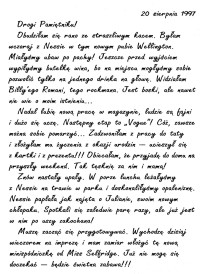 20 sierpnia 1997
Drogi Pamiętniku!
Obudziłam się rano ze strasznym kacem. Byłam
wczoraj z Nessie w tym nowym pubie Wellington.
Miałyśmy ubaw po pachy! Jeszcze przed wyjściem
wypiłyśmy butelkę wina, bo na miejscu mogłyśmy sobie
pozwolić tylko na jednego drinka na głowę. Widziałam
Billy'ego Romani, tego rockmana. Jest boski, ale nawet
nie wie o moim istnieniu...
Nadal lubię nową pracę w magazynie, ludzie są fajni
i dużo się uczę. Następny etap to „Vogue”! Cóż, zawsze
można sobie pomarzyć... Zadzwoniłam z pracy do taty
i złożyłam mu życzenia z okazji urodzin — ucieszył się
z kartki i z prezentu!!! Obiecałam, że przyjadę do domu na
przyszły weekend. Tak tęsknię za nim i mamą!
Znów nastały upały. W porze lunchu leżałyśmy
z Nessie na trawie w parku i doskonaliłyśmy opaleniznę.
Nessie paplała jak najęta o Julianie, swoim nowym
chłopaku. Spotkali się zaledwie parę razy, ale już jest
w nim po uszy zakochana!
Muszę zacząć się przygotowywać. Wychodzę dzisiaj
wieczorem na imprezę i mam zamiar włożyć tę nową
minispódniczkę od Miss Selfridge. Już nie mogę się
doczekać — będzie świetna zabawa!!!